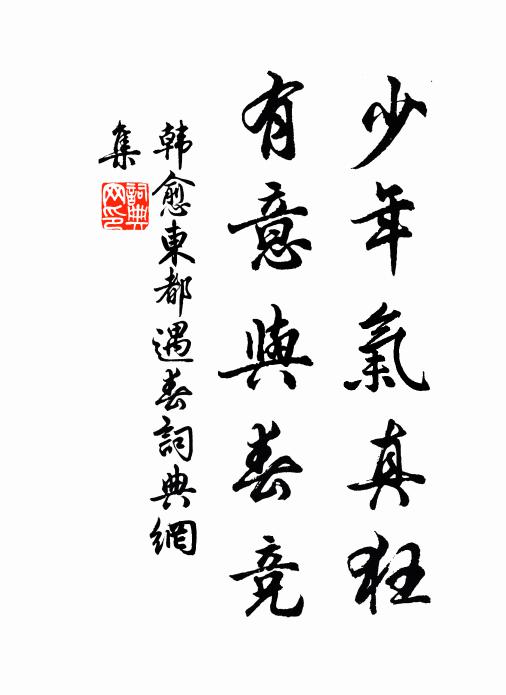 少年氣真狂
有意與春竞
韩愈東都遇春詞典網
集
詞典
网印